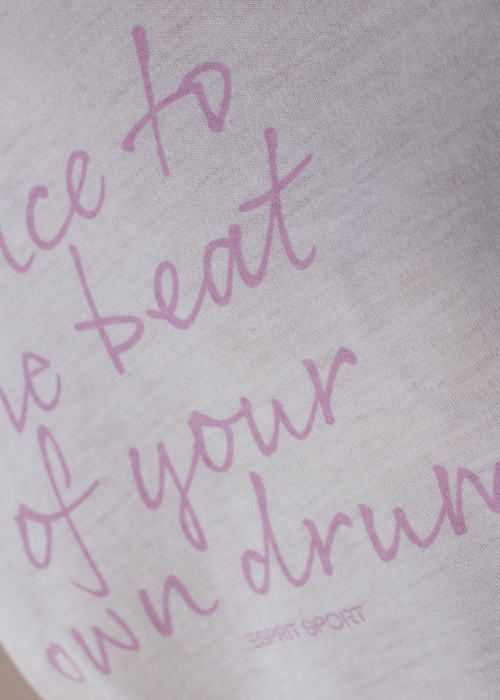 nce to
he beat
of your
own drum
ESPRIT SPORT